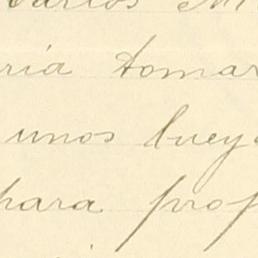 Carlos M
ria tomar
unos bueye
para prop